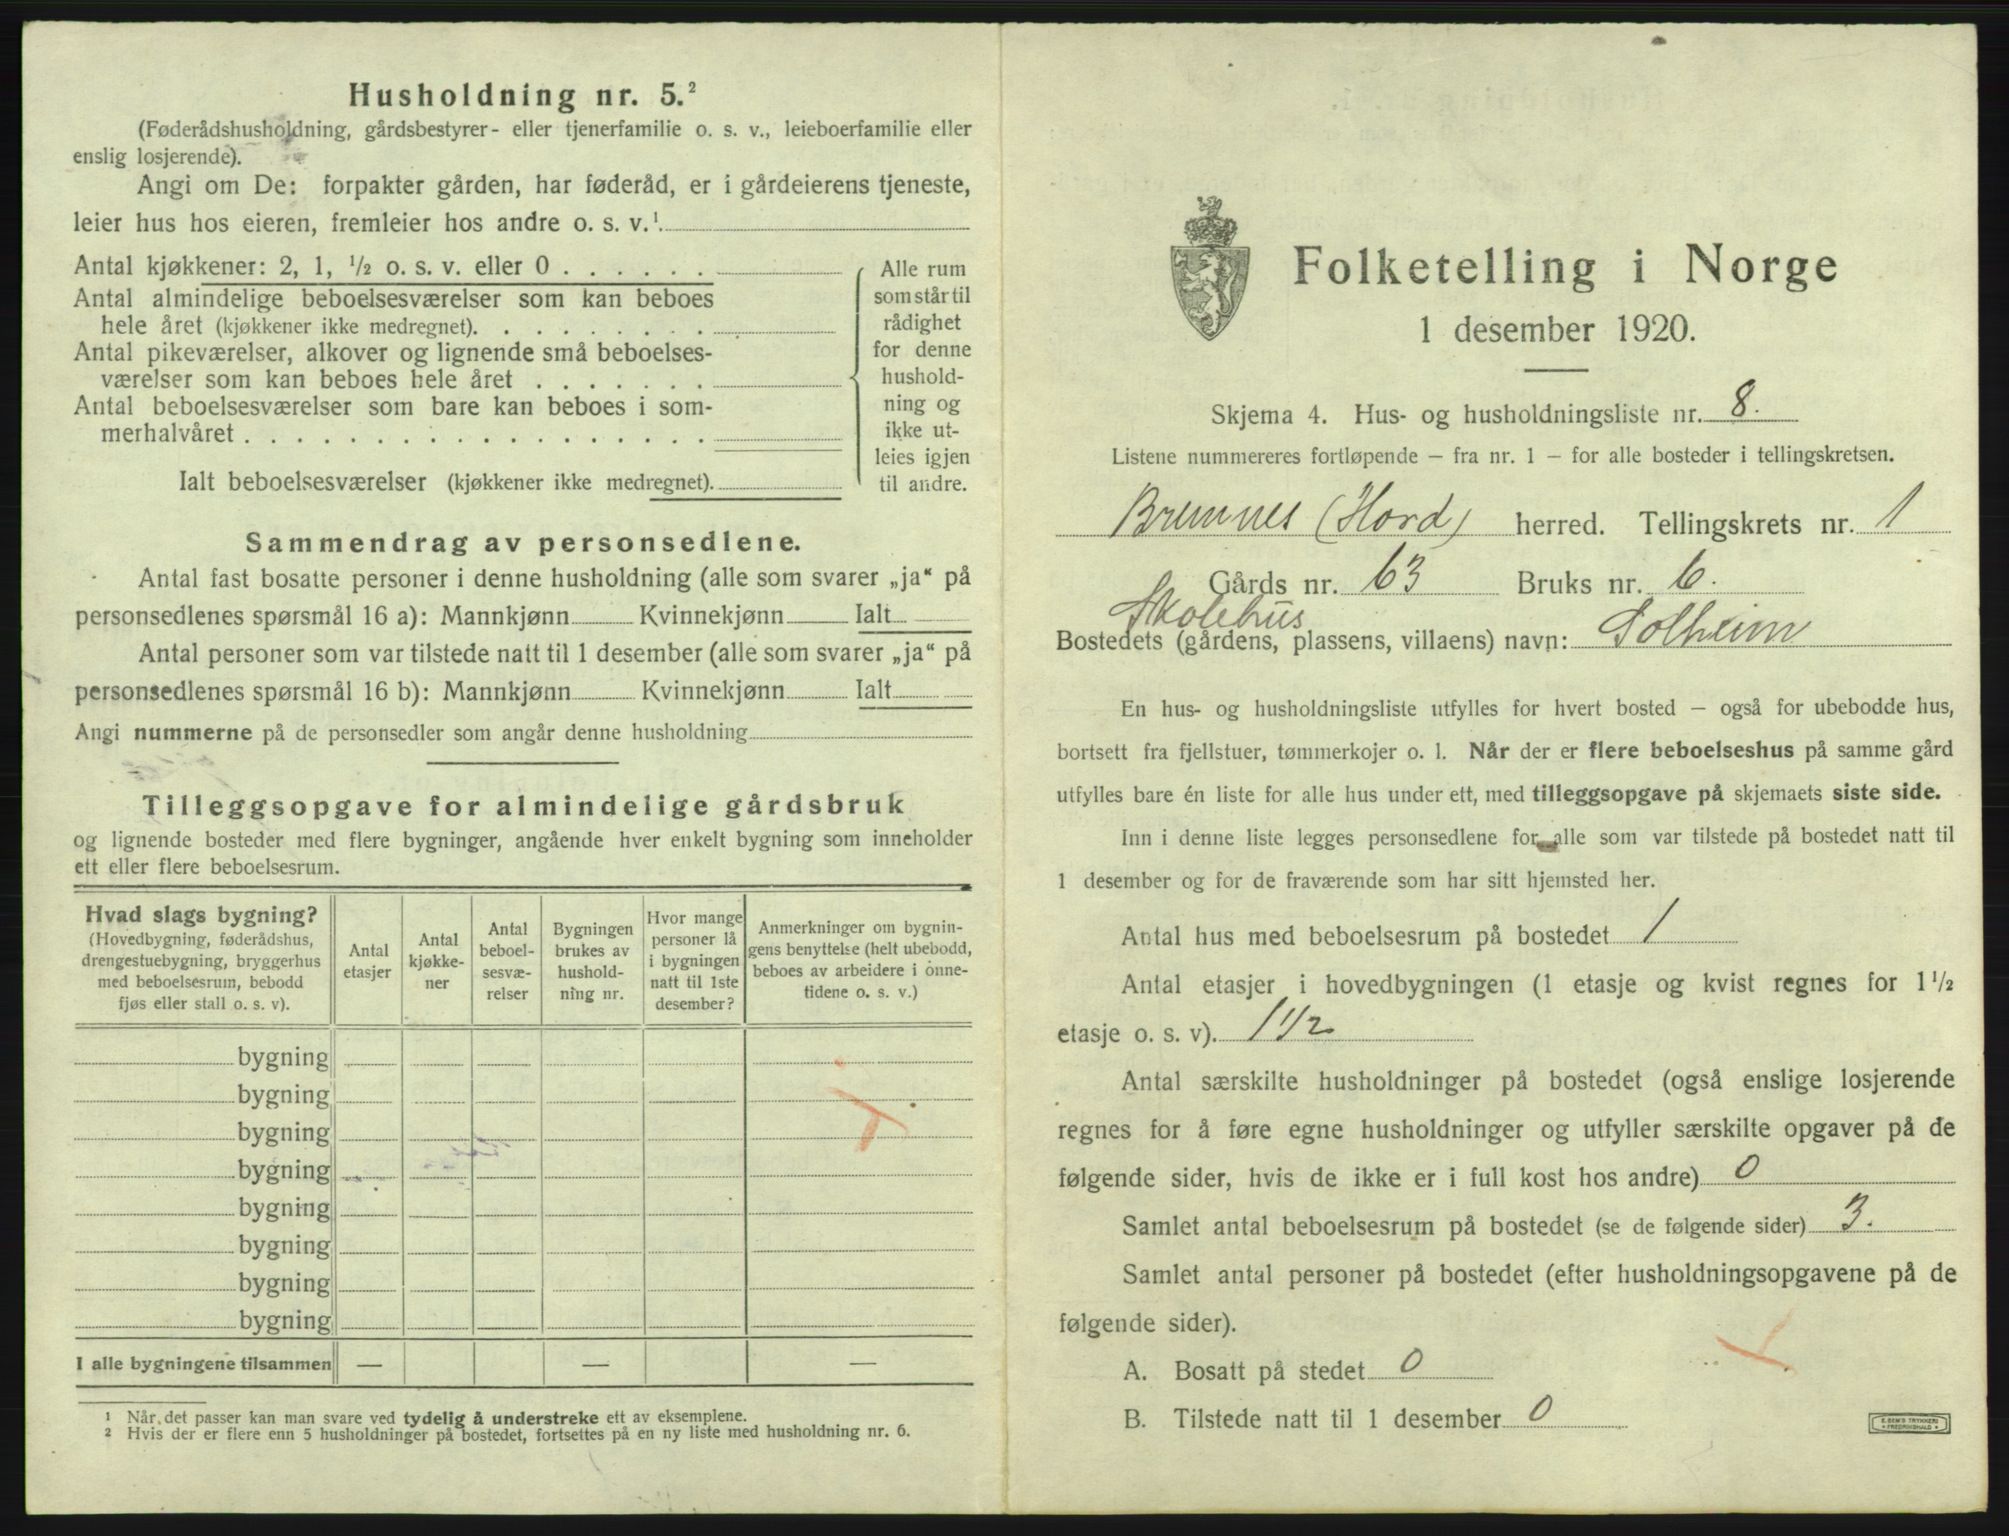 Husholdning nr. 5.²
(Føderådshusholdning, gårdsbestyrer- eller tjenerfamilie o. s. v., leieboerfamilie eller
enslig losjerende).
Angi om De: forpakter gården, har føderåd, er i gårdeierens tjeneste,
leier hus hos eieren, fremleier hos andre o. s. v.¹.
Antal kjøkkener: 2, 1, ½ o. s. v. eller 0 . . . . . .
Antal almindelige beboelsesværelser som kan beboes
hele året (kjøkkener ikke medregnet). . . . . . . . .
Antal pikeværelser, alkover og lignende små beboelses-
værelser som kan beboes hele året . . . . . . .
Antal beboelsesværelser som bare kan beboes i som-
merhalvåret . . . . . . . . . . . . . . . . . .
Ialt beboelsesværelser (kjøkkener ikke medregnet).
Alle rum
som står til
rådighet
for denne
hushold-
ning og
ikke ut-
leies igjen
til andre.
Sammendrag av personsedlene.
Antal fast bosatte personer i denne husholdning (alle som svarer „ja“ på
personsedlenes spørsmål 16 a): Mannkjønn Kvinnekjønn Ialt
Antal personer som var tilstede natt til 1 desember (alle som svarer „ja“ på
personsedlenes spørsmål 16 b): Mannkjønn Kvinnekjønn Ialt
Angi nummerne på de personsedler som angår denne husholdning
Tilleggsopgave for almindelige gårdsbruk
og lignende bosteder med flere bygninger, angående hver enkelt bygning som inneholder
ett eller flere beboelsesrum.
Hvad slags bygning?
(Hovedbygning, føderådshus,
drengestuebygning, bryggerhus
med beboelsesrum, bebodd
fjøs eller stall o. s. v).
Antal
etasjer
Antal
kjøkke-
ner
Antal
beboel-
sesvæ-
relser
Bygningen
brukes av
hushold-
ning nr.
Hvor mange
personer lå
i bygningen
natt til 1ste
desember?
Anmerkninger om bygnin-
gens benyttelse (helt ubebodd,
beboes av arbeidere i onne-
tidene o. s. v.)
bygning
bygning
bygning
bygning
bygning
bygning
bygning
bygning
I alle bygningene tilsammen — — —
¹ Når det passer kan man svare ved tydelig å understreke ett av eksemplene.
² Hvis der er flere enn 5 husholdninger på bostedet, fortsettes på en ny liste med husholdning nr. 6.
Folketelling i Norge
1 desember 1920.
Skjema 4. Hus- og husholdningsliste nr. 8.
Listene nummereres fortløpende – fra nr. 1 – for alle bosteder i tellingskretsen.
Bremnes (Hord) herred. Tellingskrets nr. 1
Gårds nr. 63 Bruks nr. 6.
Skolehus
Bostedets (gårdens, plassens, villaens) navn: Solheim
En hus- og husholdningsliste utfylles for hvert bosted – også for ubebodde hus,
bortsett fra fjellstuer, tømmerkojer o. l. Når der er flere beboelseshus på samme gård
utfylles bare én liste for alle hus under ett, med tilleggsopgave på skjemaets siste side.
Inn i denne liste legges personsedlene for alle som var tilstede på bostedet natt til
1 desember og for de fraværende som har sitt hjemsted her.
Antal hus med beboelsesrum på bostedet 1
Antal etasjer i hovedbygningen (1 etasje og kvist regnes for 1½
etasje o. s. v). 1 1/2
Antal særskilte husholdninger på bostedet (også enslige losjerende
regnes for å føre egne husholdninger og utfyller særskilte opgaver på de
følgende sider, hvis de ikke er i full kost hos andre) 0
Samlet antal beboelsesrum på bostedet (se de følgende sider) 3.
Samlet antal personer på bostedet (efter husholdningsopgavene på de
følgende sider).
A. Bosatt på stedet 0
B. Tilstede natt til 1 desember 0